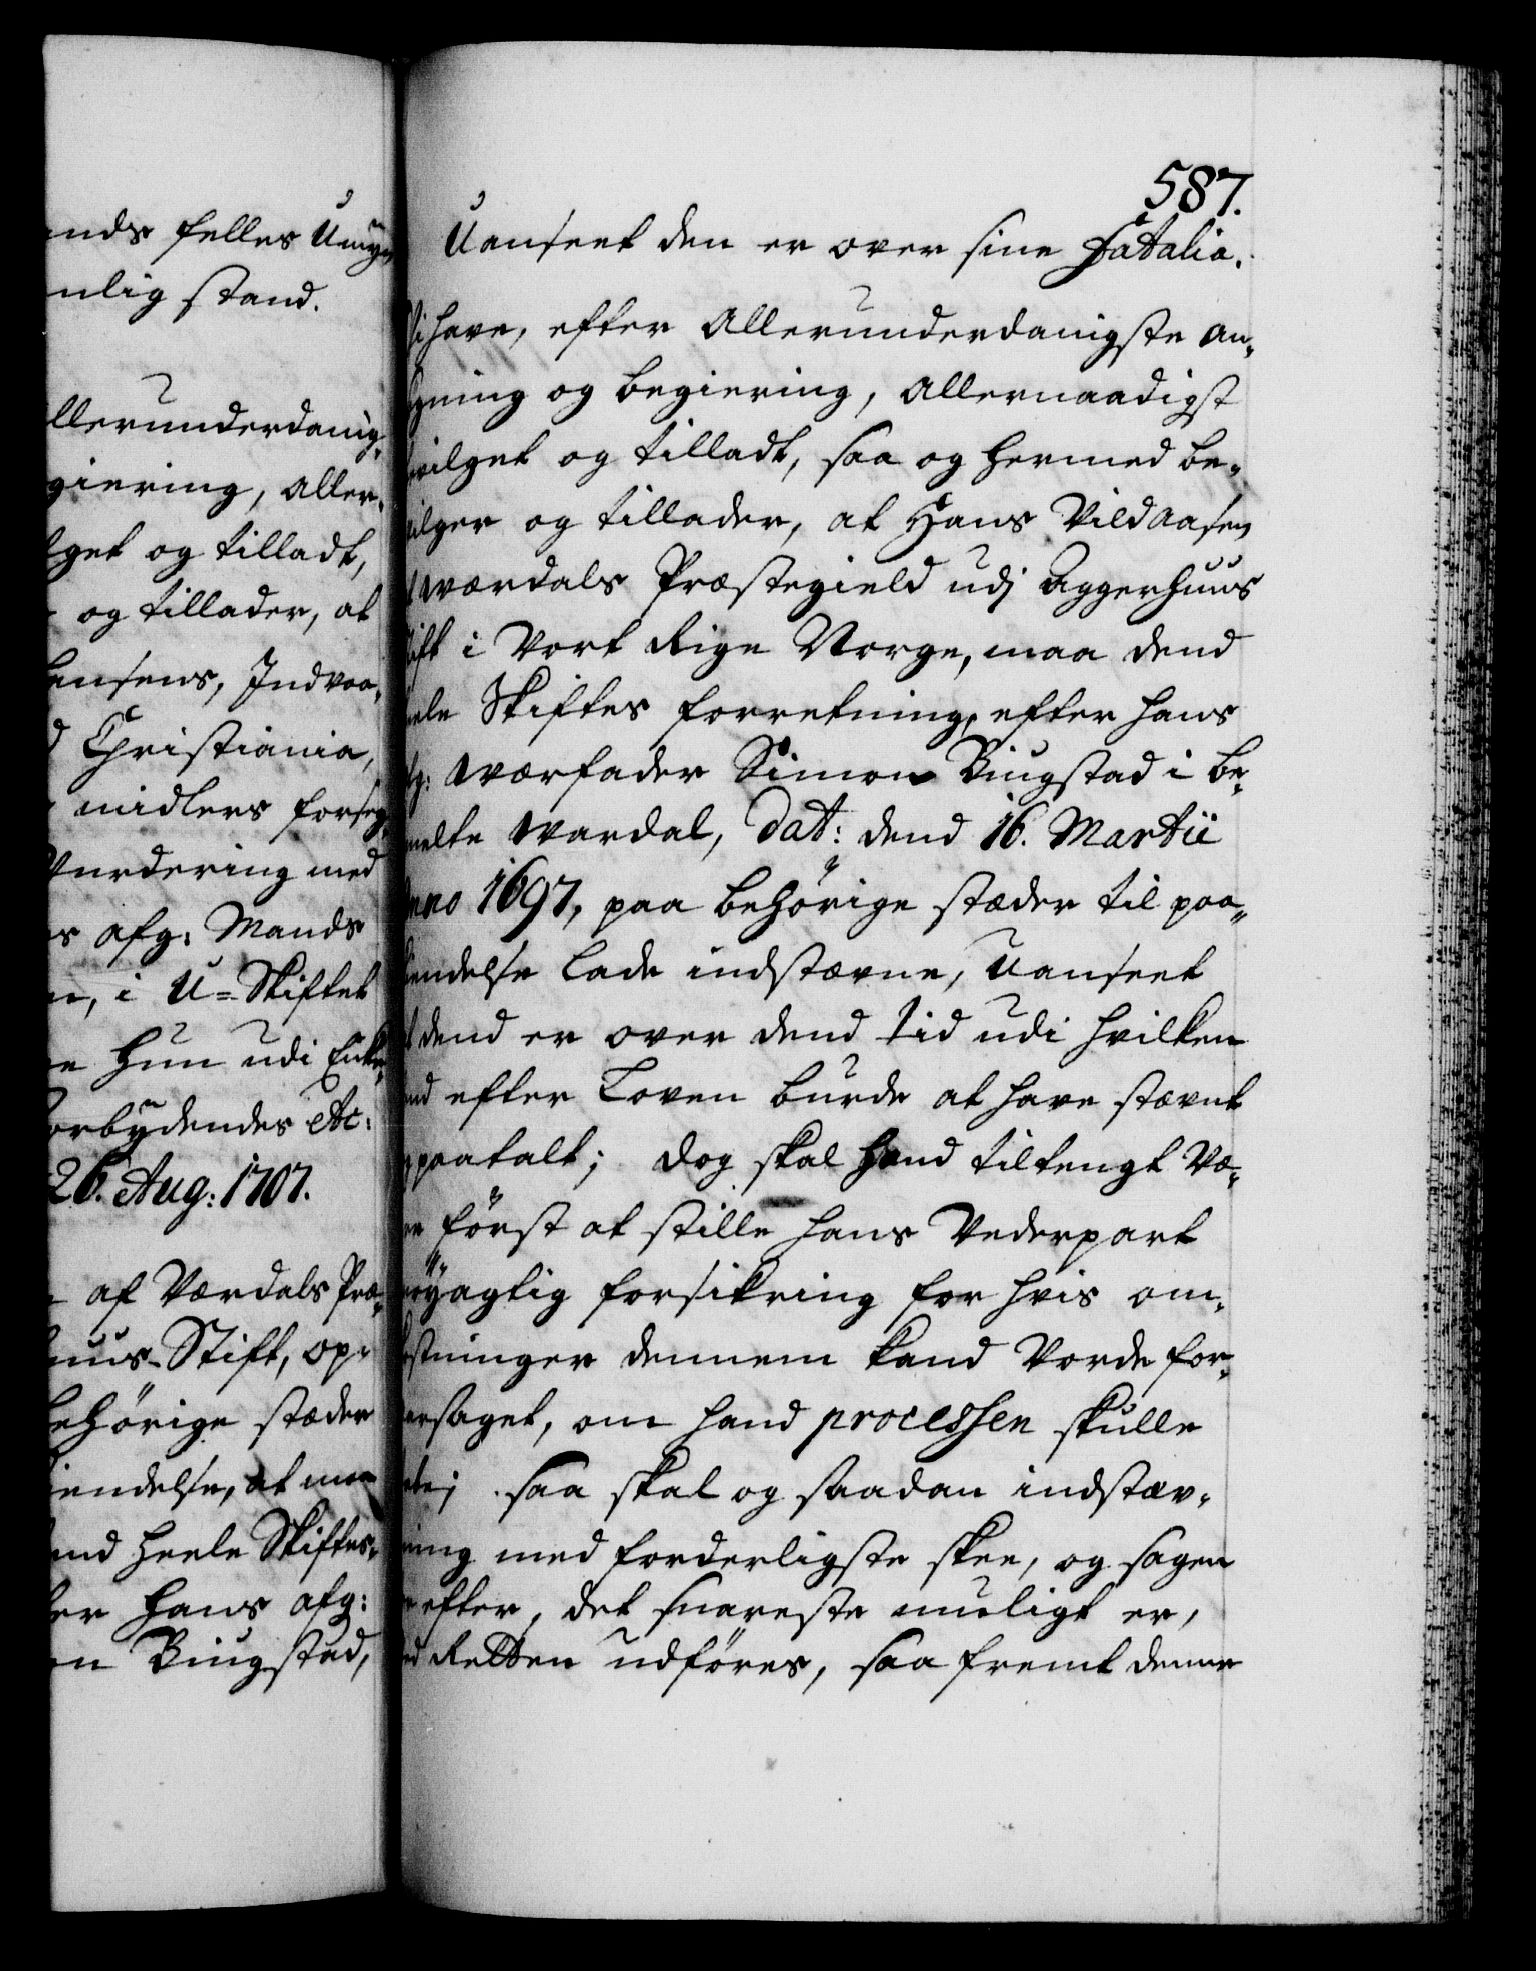 ands felles Umyn
nlig stand.
llerunderdanig,
giering, aller,
lget og tilladt,
og tillader, at
hansens, Indvaa,
Christiania,
midlers forseg,
Vurdering med
afg: Mands
i U=Skiftet
Hun udi Enke,
forbydendes etc:
26. Aug: 1707.
af Værdals Præ,
huus-Stift, op,
behörige stæder
kiendelse, at maa
end heele Skiftes,
ter hans afg:
on Biugstad,
587.
Uanseet den er over sine Fatalia.
Vi have, efter Allerunderdanigste an,
gning og begiering, allernaadigst
evilget og tilladt, saa og hermed be,
vilger og tillader, at Hans Vildaasen
Wærdals Præstegield udj Aggerhuus
tift i Vort Rige Norge, maa dend
eele Skiftes forretning, efter hans
fg: Wærfader Simon Biugstad i be,
melte Wardal, Dat: dend 16. Martii
Anno 1697, paa behörige stæder til paa,
kiendelse lade indstævne, Uanseet
dend er over dend tid udi hvilken
and efter Loven burde at have stævnt
g paatalt; dog skal Hand tiltengt Væ,
re först at stille hans Vederpart
nöyagtig forsikring for hvis om,
kostninger dennem kand Vorde for,
aarsaget, om hand processen skulle
abe; saa skal og saadan indstæv,
ning med forderligste skee, og sagen
efter, det snareste mueligt er,
ed Retten udföres, saa fremt denne